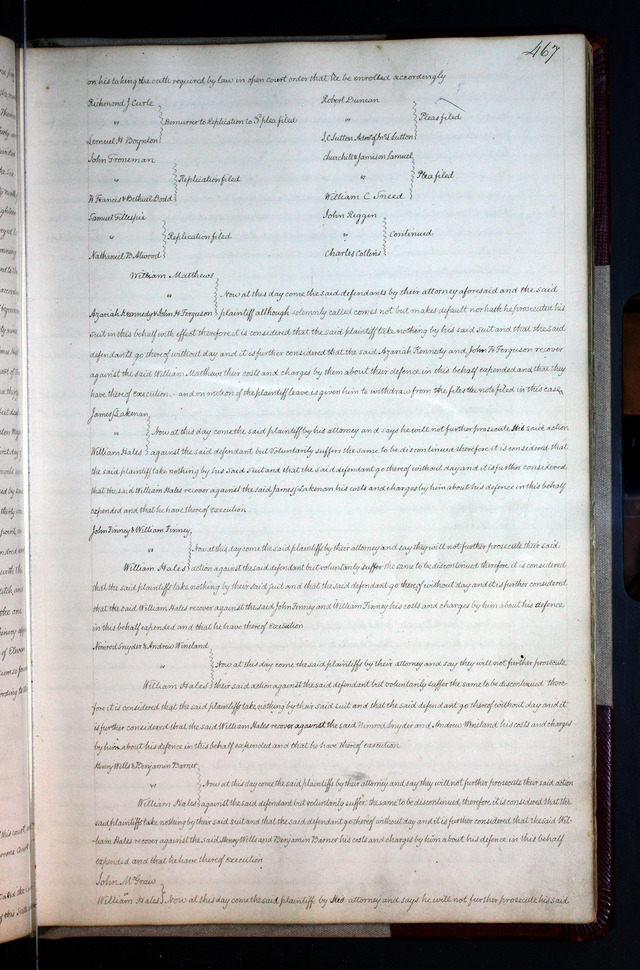 467
on his taking the oath required by law in open court order that he be enrolled accordingly
Richmond J Curle
" Demurrer to Replication to 3d plea filed
Lemuel H Boynton
Robert Duncan
" Pleas filed
J.C Sutton Adm. of Sutton
John Troneman
" Replication filed
H Francis & Bethuel Dodd
Churchill & Jamison Samuel
" Plea filed
William C Sneed
Samuel Gillespie
" Replication filed
Nathaniel B Atwood
John Riggin
" Continued
Charles Collins
William Matthews
" Now at this day come the said defendants by their attorney aforesaid and the said
Azariah Kennedy & John H Ferguson plaintiff although solemnly called comes not but makes default nor hath he prosecuted his
suit in this behalf with effect therefore it is considered that the said plaintiff take nothing by his said suit and that the said
defendants go thereof without day and it is further considered that the said Azariah Kennedy and John H Ferguson recover
against the said William Matthews their costs and charges by them about their defence in this behalf expended and that they
have thereof execution - and on motion of the plaintiff leave is given him to withdraw from the files the note filed in this case
James Lakenan
" Now at this day come the said plaintiff by his attorney and says he will not further prosecute his said action
William Hales against the said defendant but Voluntarily suffers the same to be discontinued therefore it is considered that
the said plaintiff take nothing by his said suit and that the said defendant go thereof without day and it is further considered
that the said William Hales recover against the said James Lakenan his costs and charges by him about his defence in this behalf
expended and that he have thereof execution
John Finney & William Finney
" Now at this day come the said plaintiffs by their attorney and say they will not further prosecute their said
William Hales action against the said defendant but voluntarily suffer the same to be discontinued therefore it is considered
that the said plaintiffs take nothing by their said suit and that the said defendant go thereof without day and it is further considered
that the said William Hales recover against the said John Finney and William Finney his costs and charges by him about his defence
in this behalf expended and that he have thereof execution
Nimrod Snyder & Andrew Wineland
" Now at this day come the said plaintiffs by their attorney and say they will not further prosecute
William Hales their said action against the said defendant but voluntarily suffer the same to be discontinued there-
fore it is considered that the said plaintiffs take nothing by their said suit and that the said defendant go thereof without day and it
is further considered that the said William Hales recover against the said Nimrod Snyder and Andrew Wineland his costs and charges
by him about his defence in this behalf expended and that he have thereof execution
Henry Wells & Benjamin Barner
" Now at this day come the said plaintiffs by their attorney and say they will not further prosecute their said action
William Hales against the said defendant but voluntarily suffer the same to be discontinued, therefore it is considered that the
said plaintiffs take nothing by their said suit and that the said defendant go thereof without day and it is further considered that the said Wil-
liam Hales recover against the said Henry Wells and Benjamin Barner his costs and charges by him about his defence in this behalf
expended and that he have thereof execution
John McGraw
"
William Hales Now at this day come the said plaintiff by his attorney and says he will not further prosecute his said